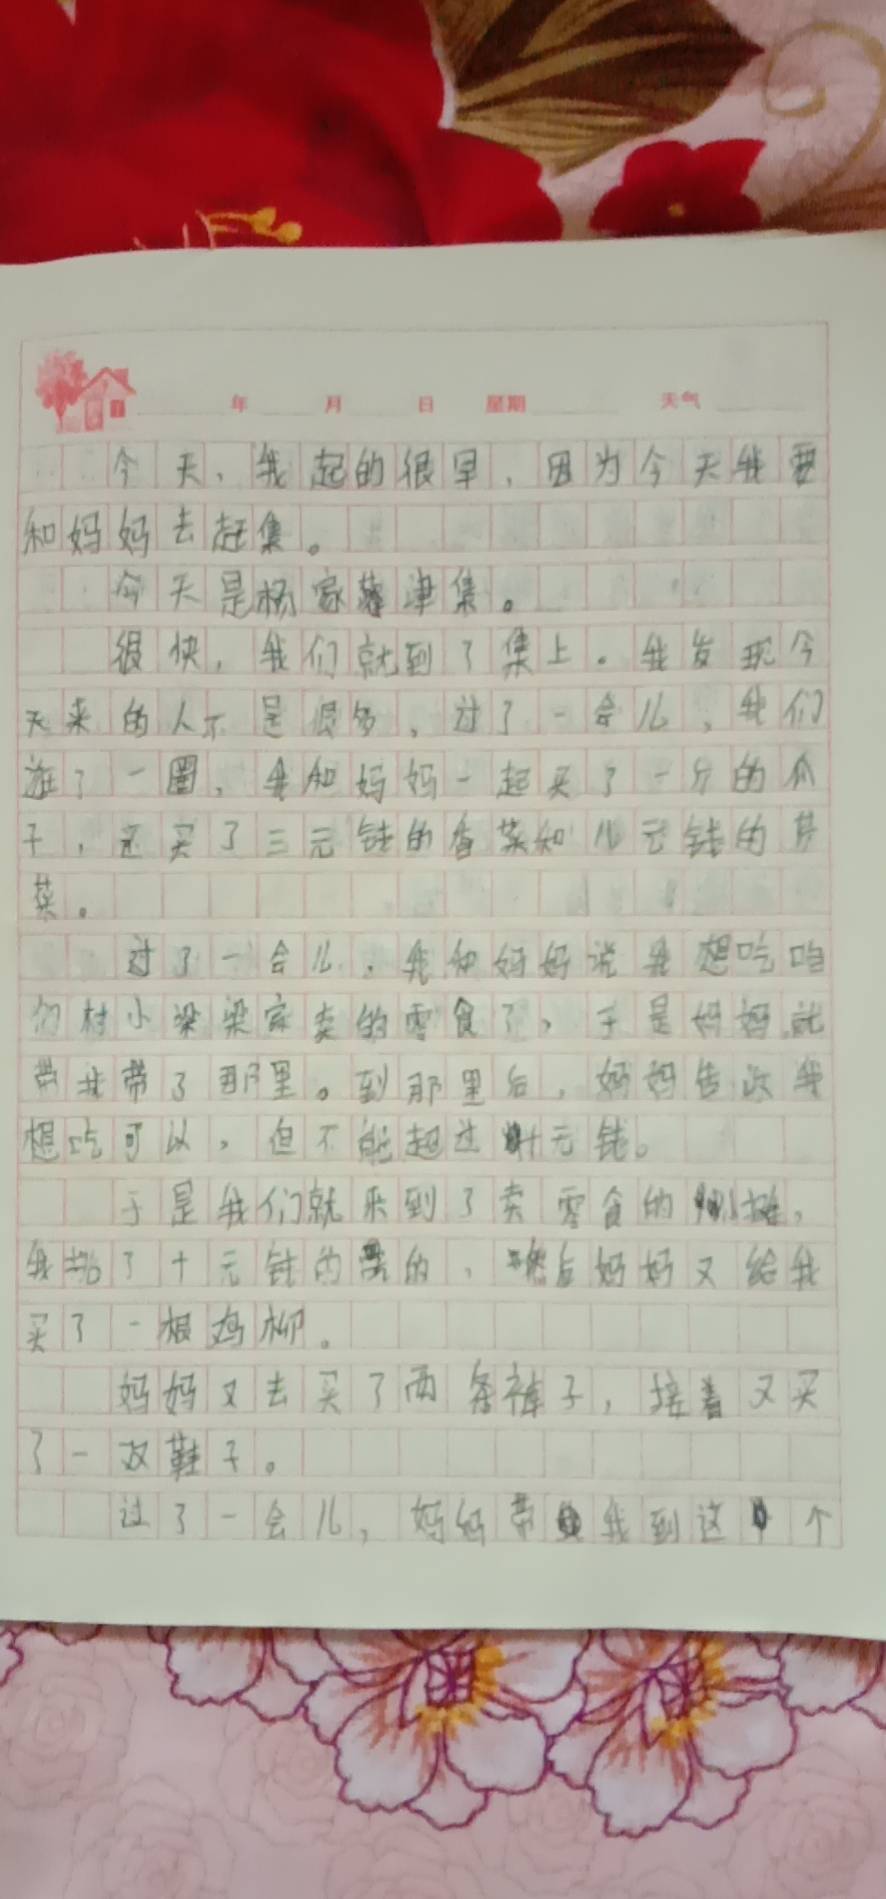 年 月 日 星期 天气
今天，我起的很早，因为今天我要
和妈妈去赶集。
今天是杨家津集。
很快，我们就到了集上。我发现今
天来的人不是很多，过了一会儿，我们
逛了一圈，我和妈妈一起买了一斤的瓜
子，还买了三元钱的香菜和几元钱的芹
菜。
过了一会儿，我和妈妈说我想吃咱
们村小梁梁家卖的零食了，于是妈妈就
带我带了那里。到那里后，妈妈告诉我
想吃可以，但不能超过十元钱。
于是我们就来到了卖零食的摊，
我挑了十元钱的的，然后妈妈又给我
买了一根鸡柳。
妈妈又去买了两条裤子，接着又买
了一双鞋子。
过了一会儿，妈妈带我到这个